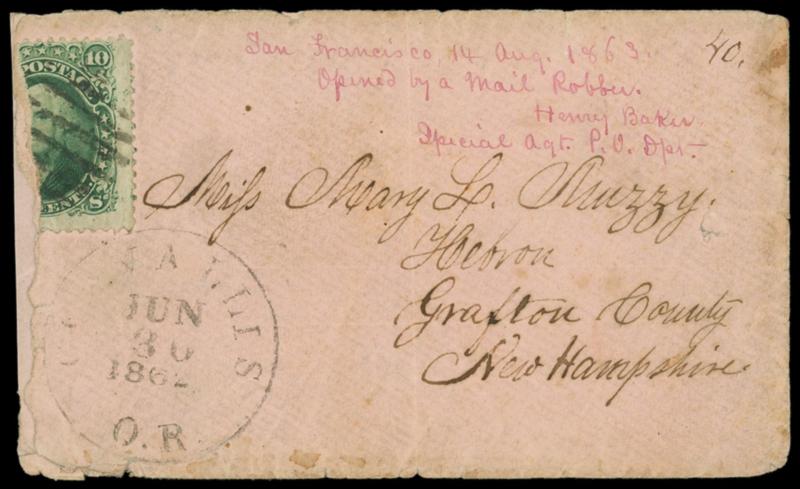 San Francisco, 14 Aug. 1863.
Opened by a Mail Robber.
Henry Baker
Special Agt. P.O. Dpt.
40.
10
POSTAGE
CENTS
U S
Miss Mary L. Muzzy.
Hebron
Grafton County
New Hampshire.
ALLIS
JUN
30
1862
O.R